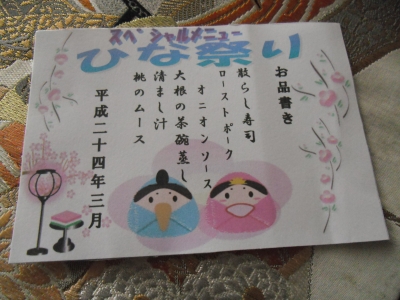 スペシャルメニュー
ひな祭り
お品書き
散らし寿司
ローストポーク
オニオンソース
大根の茶碗蒸し
清まし汁
桃のムース
平成二十四年三月